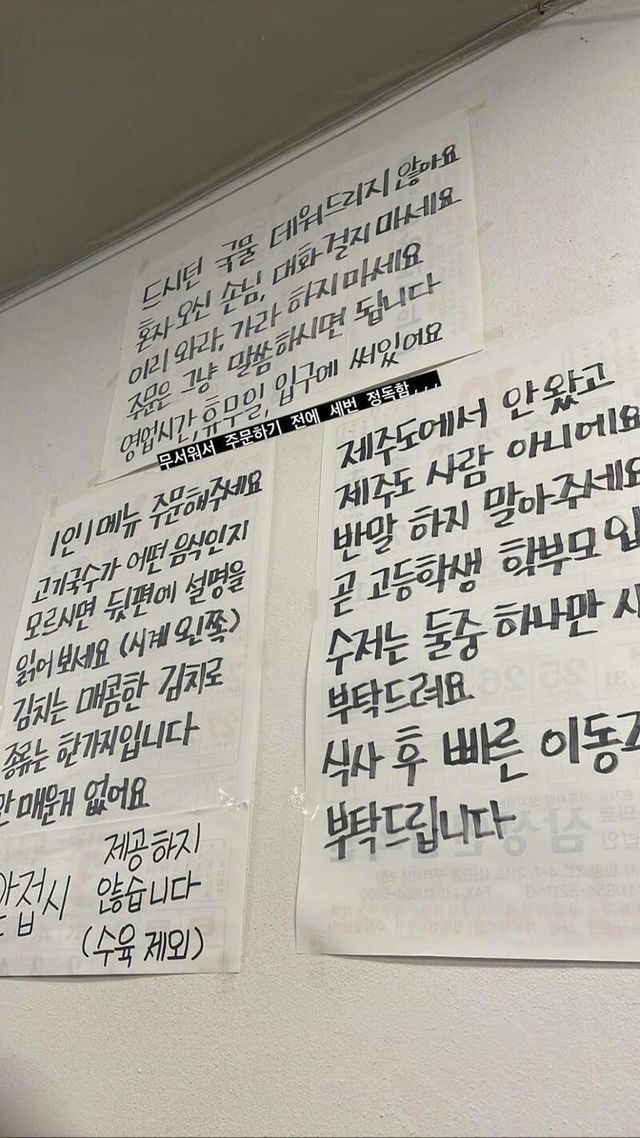 드시던 국물 데워드리지 않아요
혼자 오신 손님, 대화 걸지 마세요
이리 와라, 가라 하지 마세요
주문은 그냥 말씀하시면 됩니다
영업시간, 휴무일, 입구에 써있어요
무서워서 주문하기 전에 세번 정독함,,,
1인 1메뉴 주문해주세요
고기국수가 어떤 음식인지
모르시면 뒷편에 설명을
읽어보세요 (시계 왼쪽)
김치는 매콤한 김치로
종류는 한가지입니다
안 매운거 없어요
앞접시 제공하지
않습니다
(수육 제외)
제주도에서 안 왔고
제주도 사람 아니에요
반말 하지 말아주세요
곧 고등학생 학부모입
수저는 둘중 하나만 사
부탁드려요
식사 후 빠른 이동
부탁드립니다